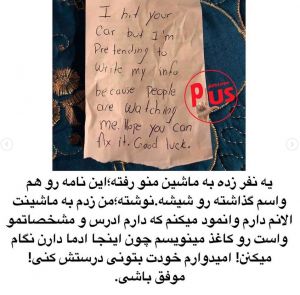 I hit your
Car but I'm
Pretending to
Write my info
because people
are watching
me. Hope you can
fix it. Good luck.
PLUS
یه نفر زده به ماشین منو رفته؛این نامه رو هم
واسم گذاشته رو شیشه.نوشته؛من زدم به ماشینت
الانم دارم وانمود میکنم که دارم ادرس و مشخصاتمو
واست رو کاغذ مینویسم چون اینجا ادما دارن نگام
میکنن! امیدوارم خودت بتونی درستش کنی!
موفق باشی.